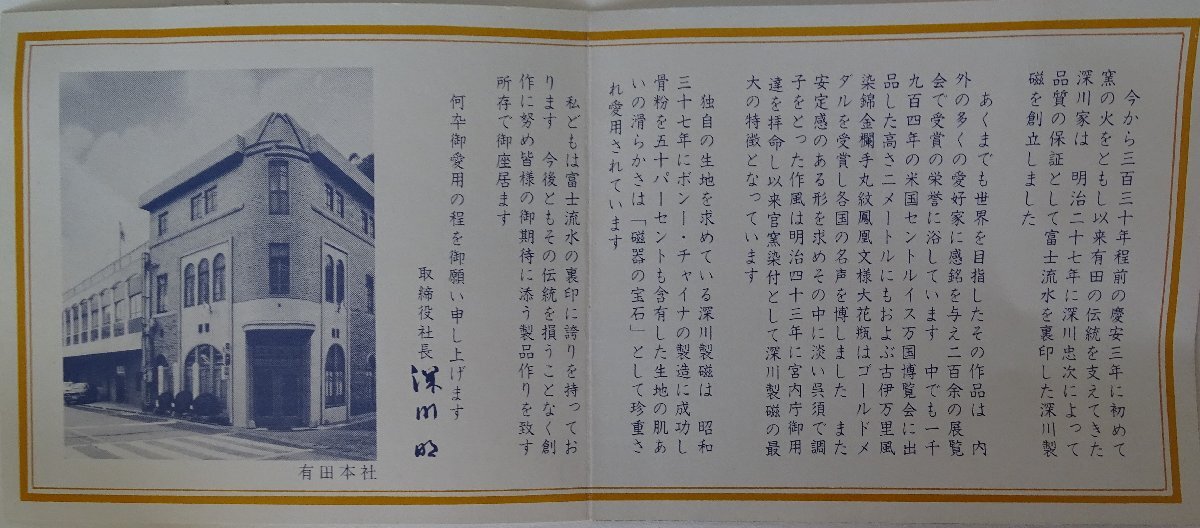 今から三百三十年程前の慶安三年に初めて
窯の火をともし以来有田の伝統を支えてきた
深川家は　明治二十七年に深川忠次によって
品質の保証として富士流水を裏印した深川製
磁を創立しました
あくまでも世界を目指したその作品は　内
外の多くの愛好家に感銘を与え二百余の展覧
会で受賞の栄誉に浴しています　中でも一千
九百四年の米国セントルイス万国博覧会に出
品した高さ二メートルにもおよぶ古伊万里風
染錦金襴手丸紋鳳凰文様大花瓶はゴールドメ
ダルを受賞し各国の名声を博しました　また
安定感のある形を求めその中に淡い呉須で調
子をとった作風は明治四十三年に宮内庁御用
達を拝命し以来官窯染付として深川製磁の最
大の特徴となっています
独自の生地を求めている深川製磁は　昭和
三十七年にボーン・チャイナの製造に成功し
骨粉を五十パーセントも含有した生地の肌あ
いの滑らかさは「磁器の宝石」として珍重さ
れ愛用されています
私どもは富士流水の裏印に誇りを持ってお
ります　今後ともその伝統を損うことなく創
作に努め皆様の御期待に添う製品作りを致す
所存で御座居ます
何卒御愛用の程を御願い申し上げます
取締役社長　深川明
有田本社